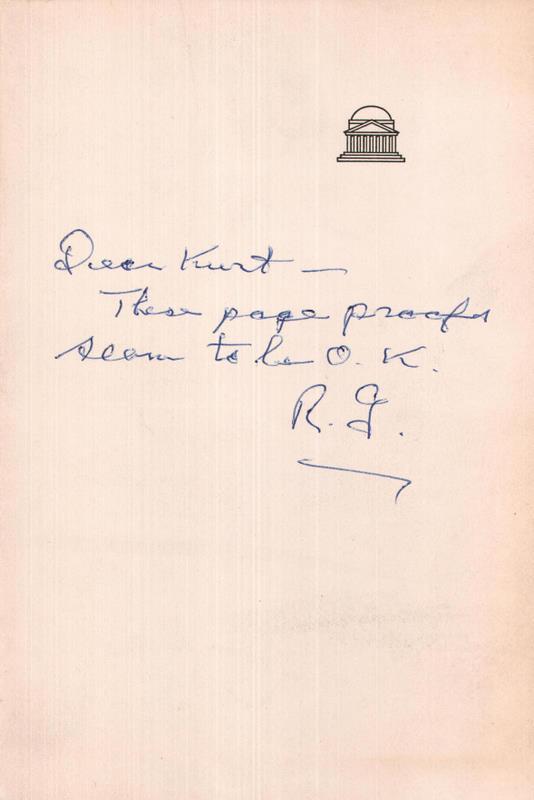 Dear Kurt —
These page proofs
seem to be O.K.
R.G.